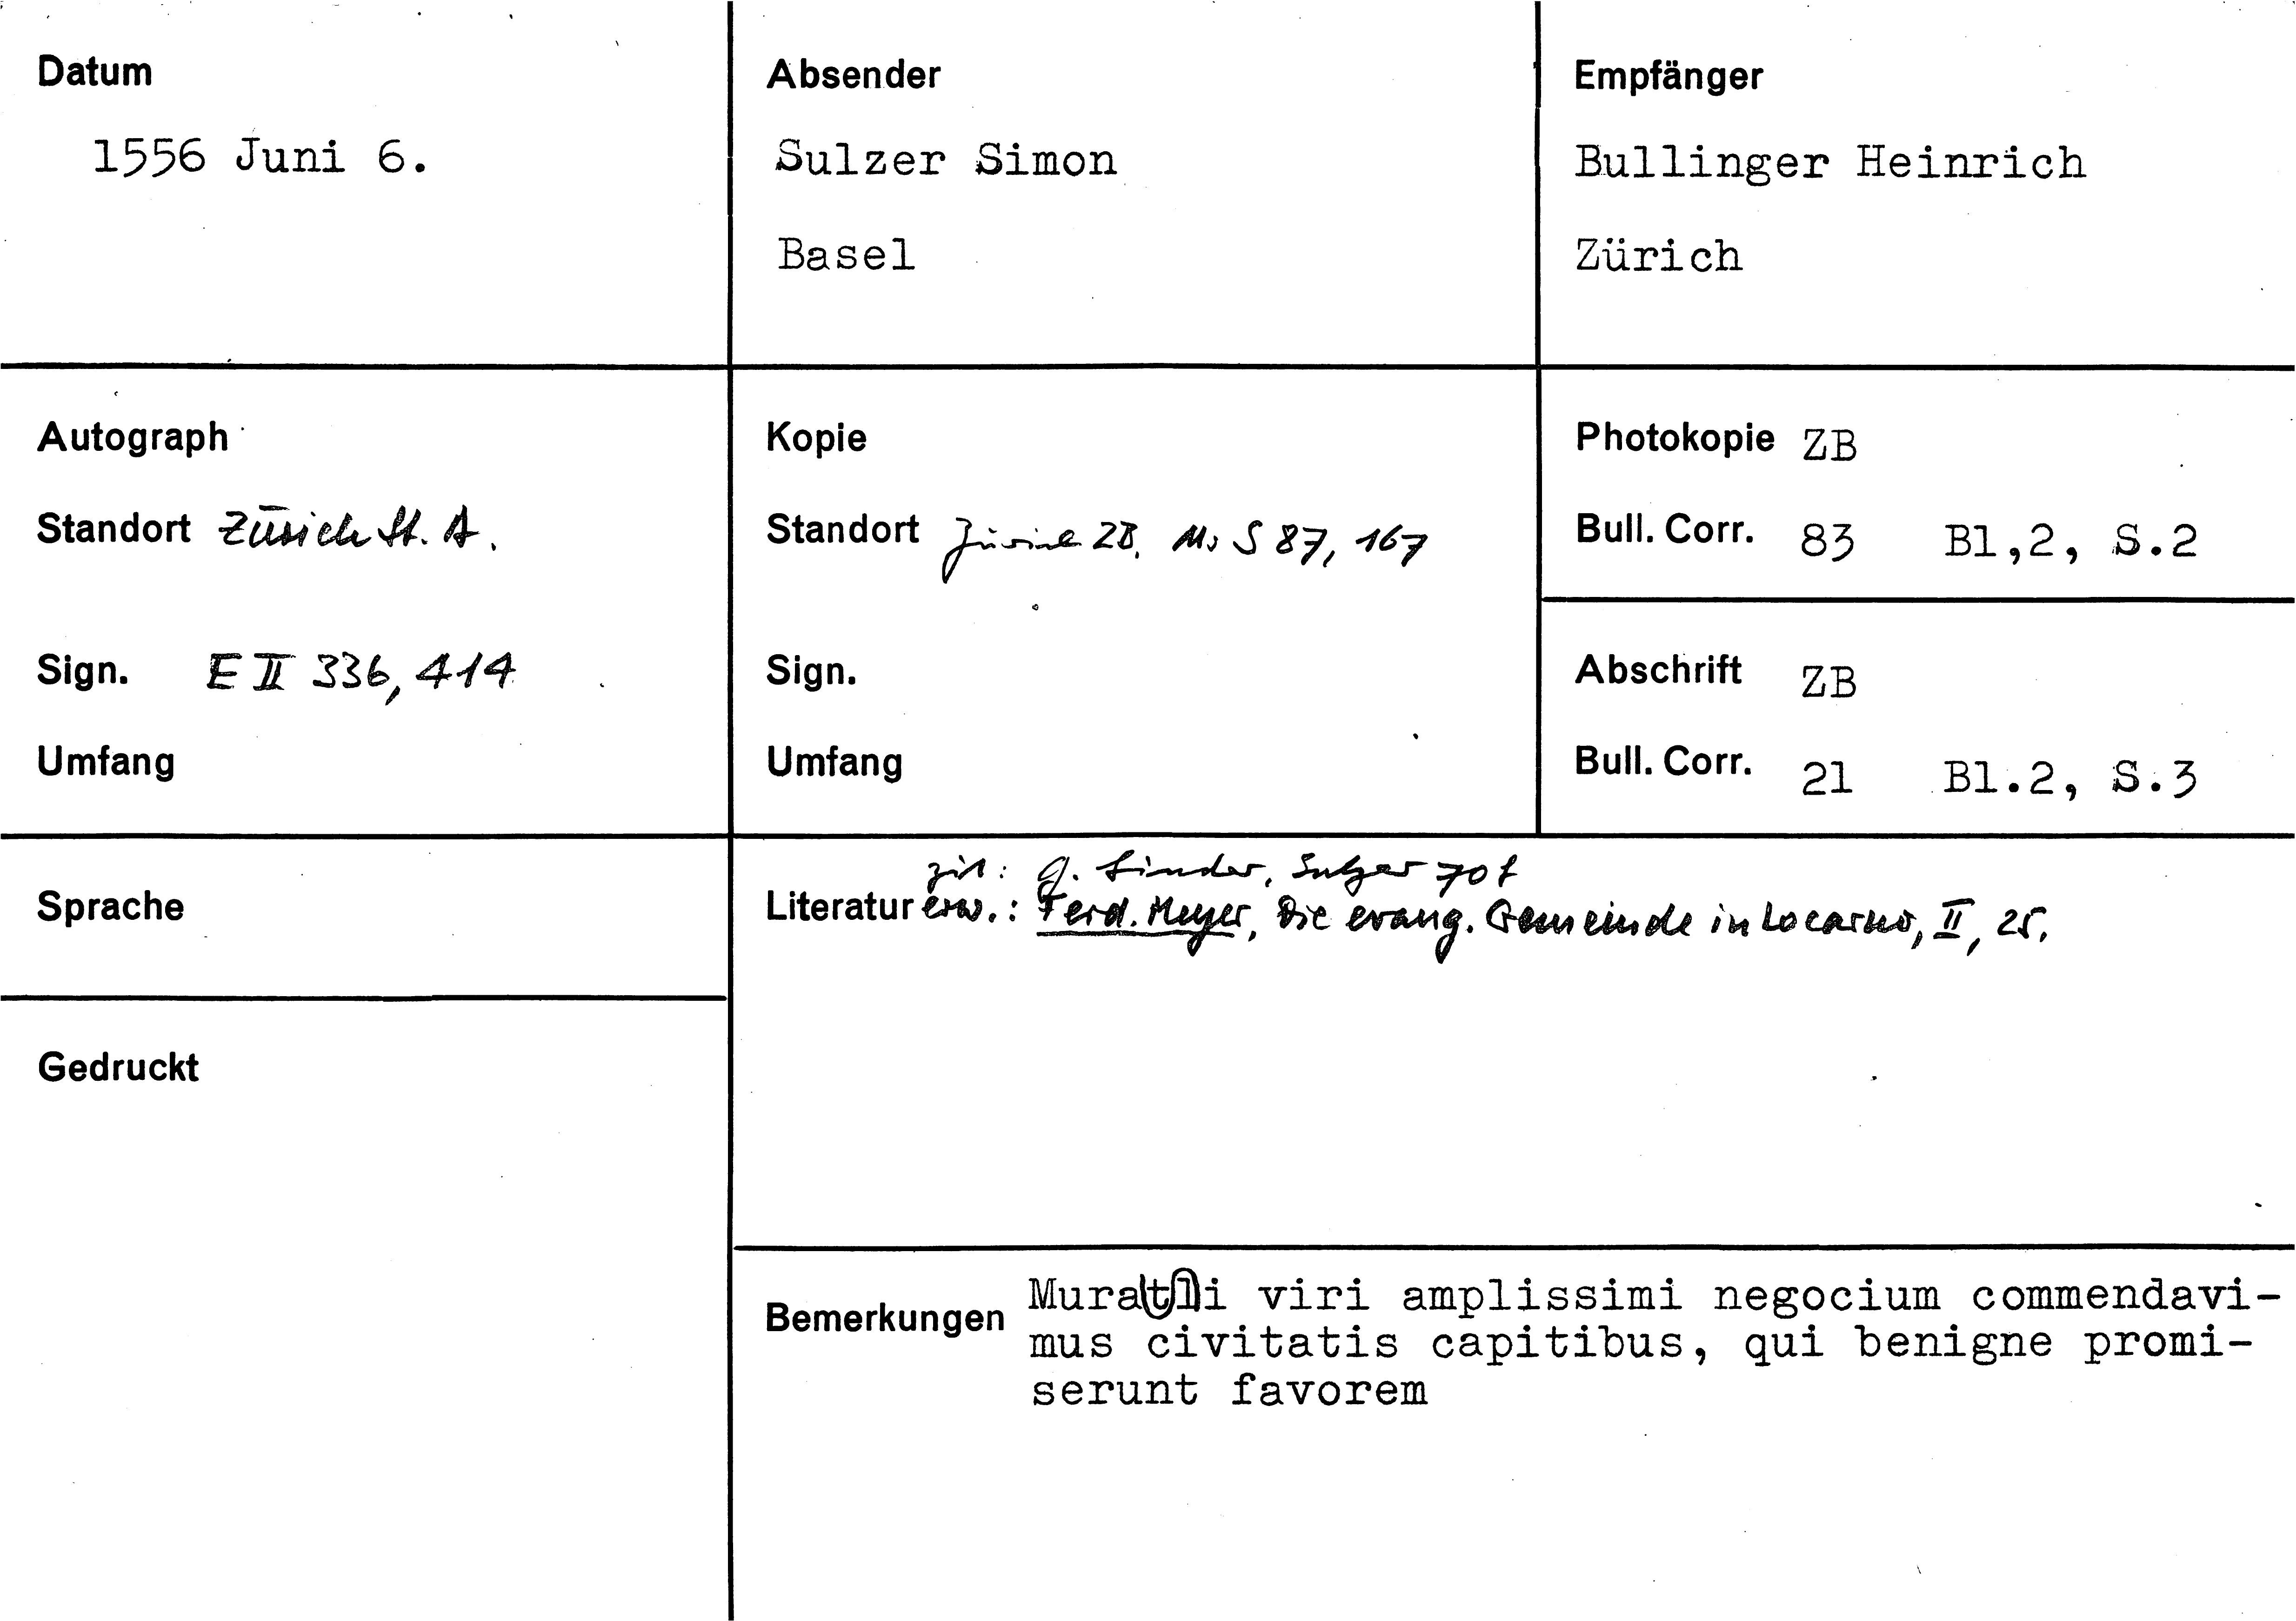 Datum
1556 Juni 6.
Absender
Sulzer Simon
Basel
Empfänger
Bullinger Heinrich
Zürich
Autograph
Standort Zürich St. A.
Sign. E II 336, 414
Umfang
Kopie
Standort Zürich ZB, Ms S 87, 167
Sign.
Umfang
Photokopie ZB
Bull. Corr. 83 Bl,2, S.2
Abschrift ZB
Bull. Corr. 21 Bl.2, S.3
Sprache
Gedruckt
zit: G. Linder, Sulzer 70 f
Literatur erw.: Ferd. Meyer, Die evang. Gemeinde in Locarno, II, 25.
Bemerkungen Muratli viri amplissimi negocium commendavi-
mus civitatis capitibus, qui benigne promi-
serunt favorem